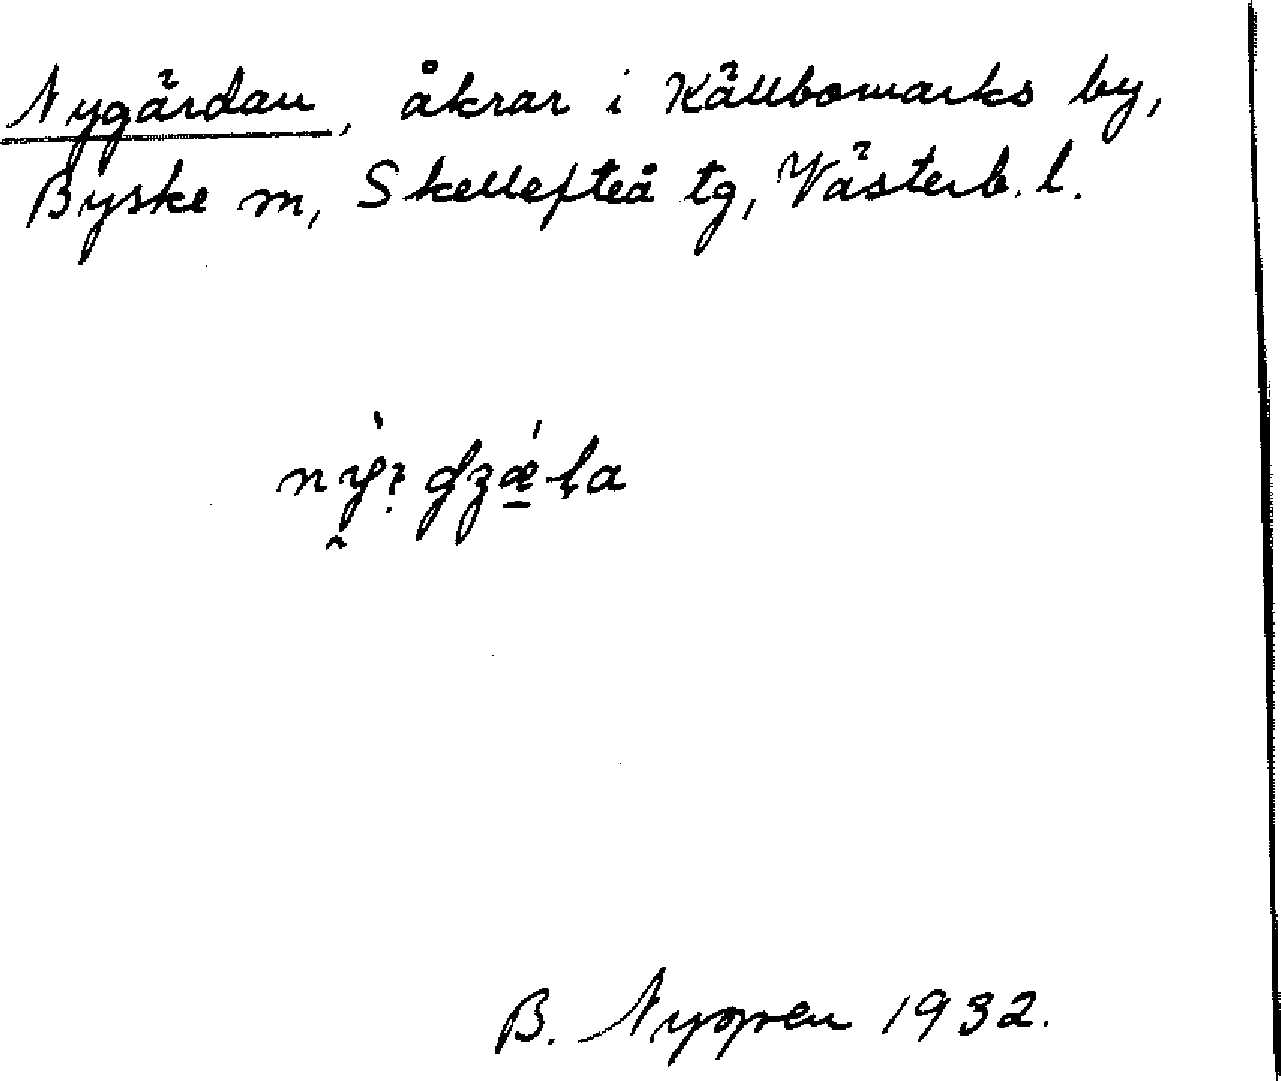 Nygärdan, åkrar i Källbomarks by,
Byske sn, Skellefteå tg, Västerb. l.
B. Nygren 1932.